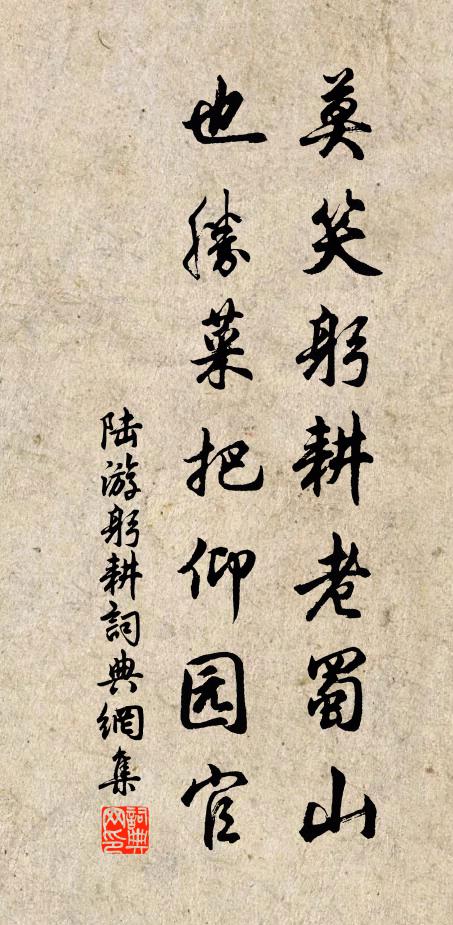 莫笑躬耕老蜀山
也勝菜把仰园官
陆游躬耕詞典網集
詞典网印